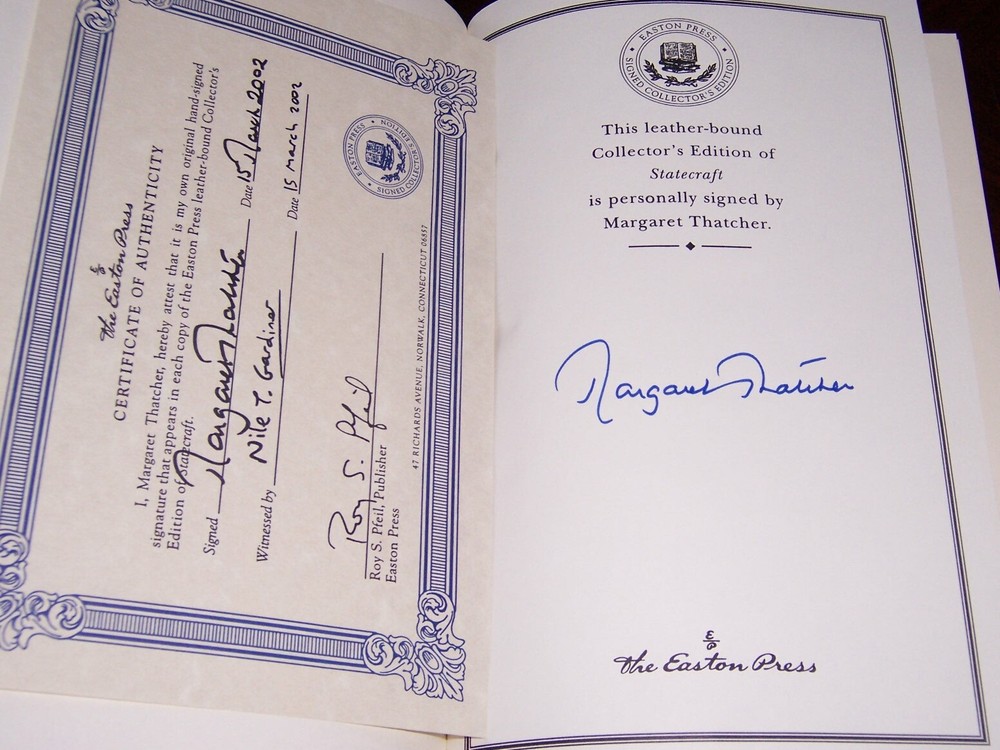 the Easton Press
CERTIFICATE OF AUTHENTICITY
I, Margaret Thatcher, hereby attest that it is my own original hand-signed
signature that appears in each copy of the Easton Press leather-bound Collector's
Edition of Statecraft.
Signed Margaret Thatcher Date 15 March 2002
Witnessed by Nile T. Gardiner Date 15 March 2002
Roy S. Pfeil
Roy S. Pfeil, Publisher
Easton Press
EASTON PRESS
SIGNED COLLECTOR'S EDITION
47 RICHARDS AVENUE, NORWALK, CONNECTICUT 06857
EASTON PRESS
SIGNED COLLECTOR'S EDITION
This leather-bound
Collector's Edition of
Statecraft
is personally signed by
Margaret Thatcher.
Margaret Thatcher
the Easton Press